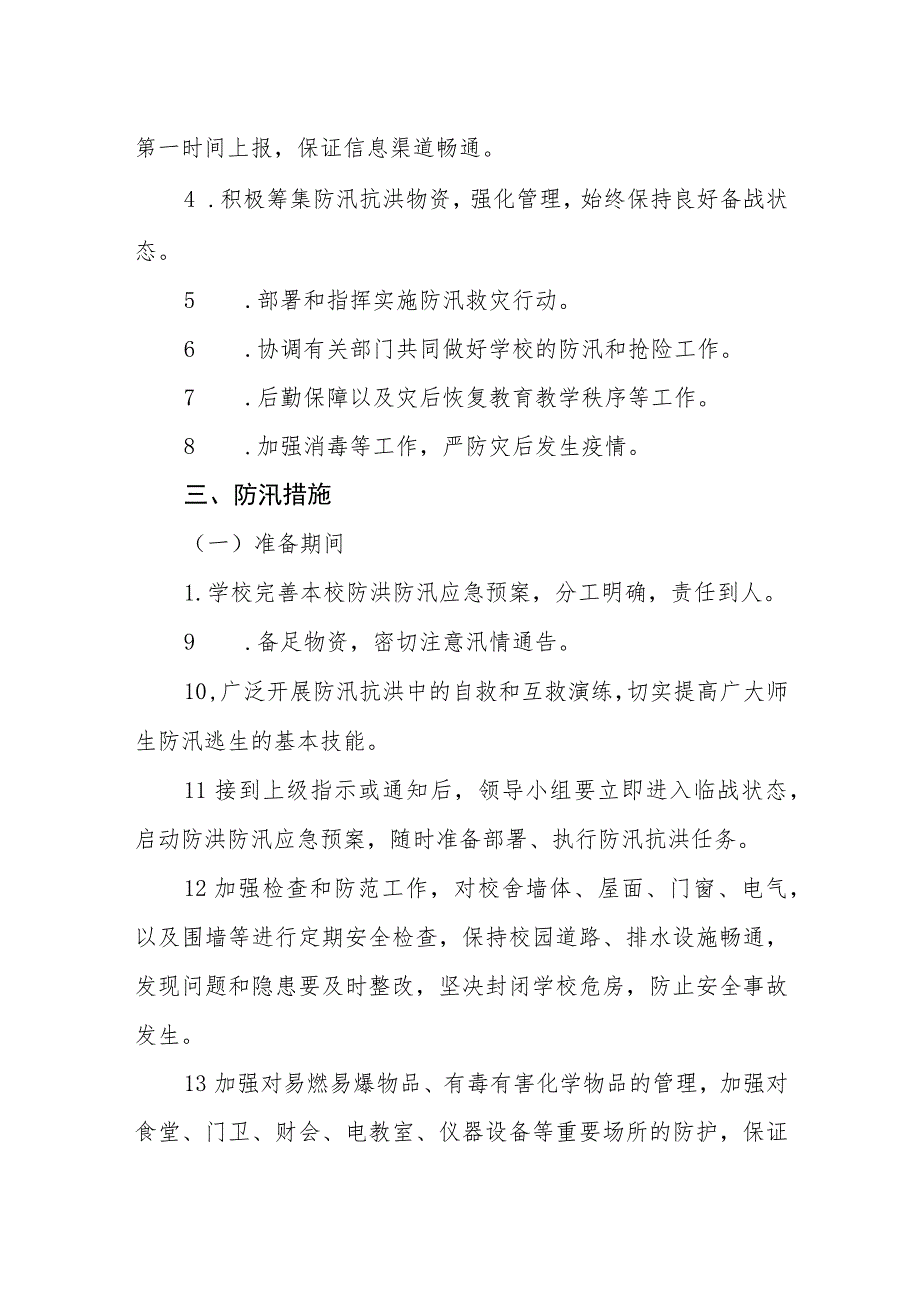 第一时间上报，保证信息渠道畅通。
4 .积极筹集防汛抗洪物资，强化管理，始终保持良好备战状
态。
5 .部署和指挥实施防汛救灾行动。
6 .协调有关部门共同做好学校的防汛和抢险工作。
7 .后勤保障以及灾后恢复教育教学秩序等工作。
8 .加强消毒等工作，严防灾后发生疫情。
三、防汛措施
（一）准备期间
1.学校完善本校防洪防汛应急预案，分工明确，责任到人。
9 .备足物资，密切注意汛情通告。
10,广泛开展防汛抗洪中的自救和互救演练，切实提高广大师
生防汛逃生的基本技能。
11 接到上级指示或通知后，领导小组要立即进入临战状态，
启动防洪防汛应急预案，随时准备部署、执行防汛抗洪任务。
12 加强检查和防范工作，对校舍墙体、屋面、门窗、电气，
以及围墙等进行定期安全检查，保持校园道路、排水设施畅通，
发现问题和隐患要及时整改，坚决封闭学校危房，防止安全事故
发生。
13 加强对易燃易爆物品、有毒有害化学物品的管理，加强对
食堂、门卫、财会、电教室、仪器设备等重要场所的防护，保证